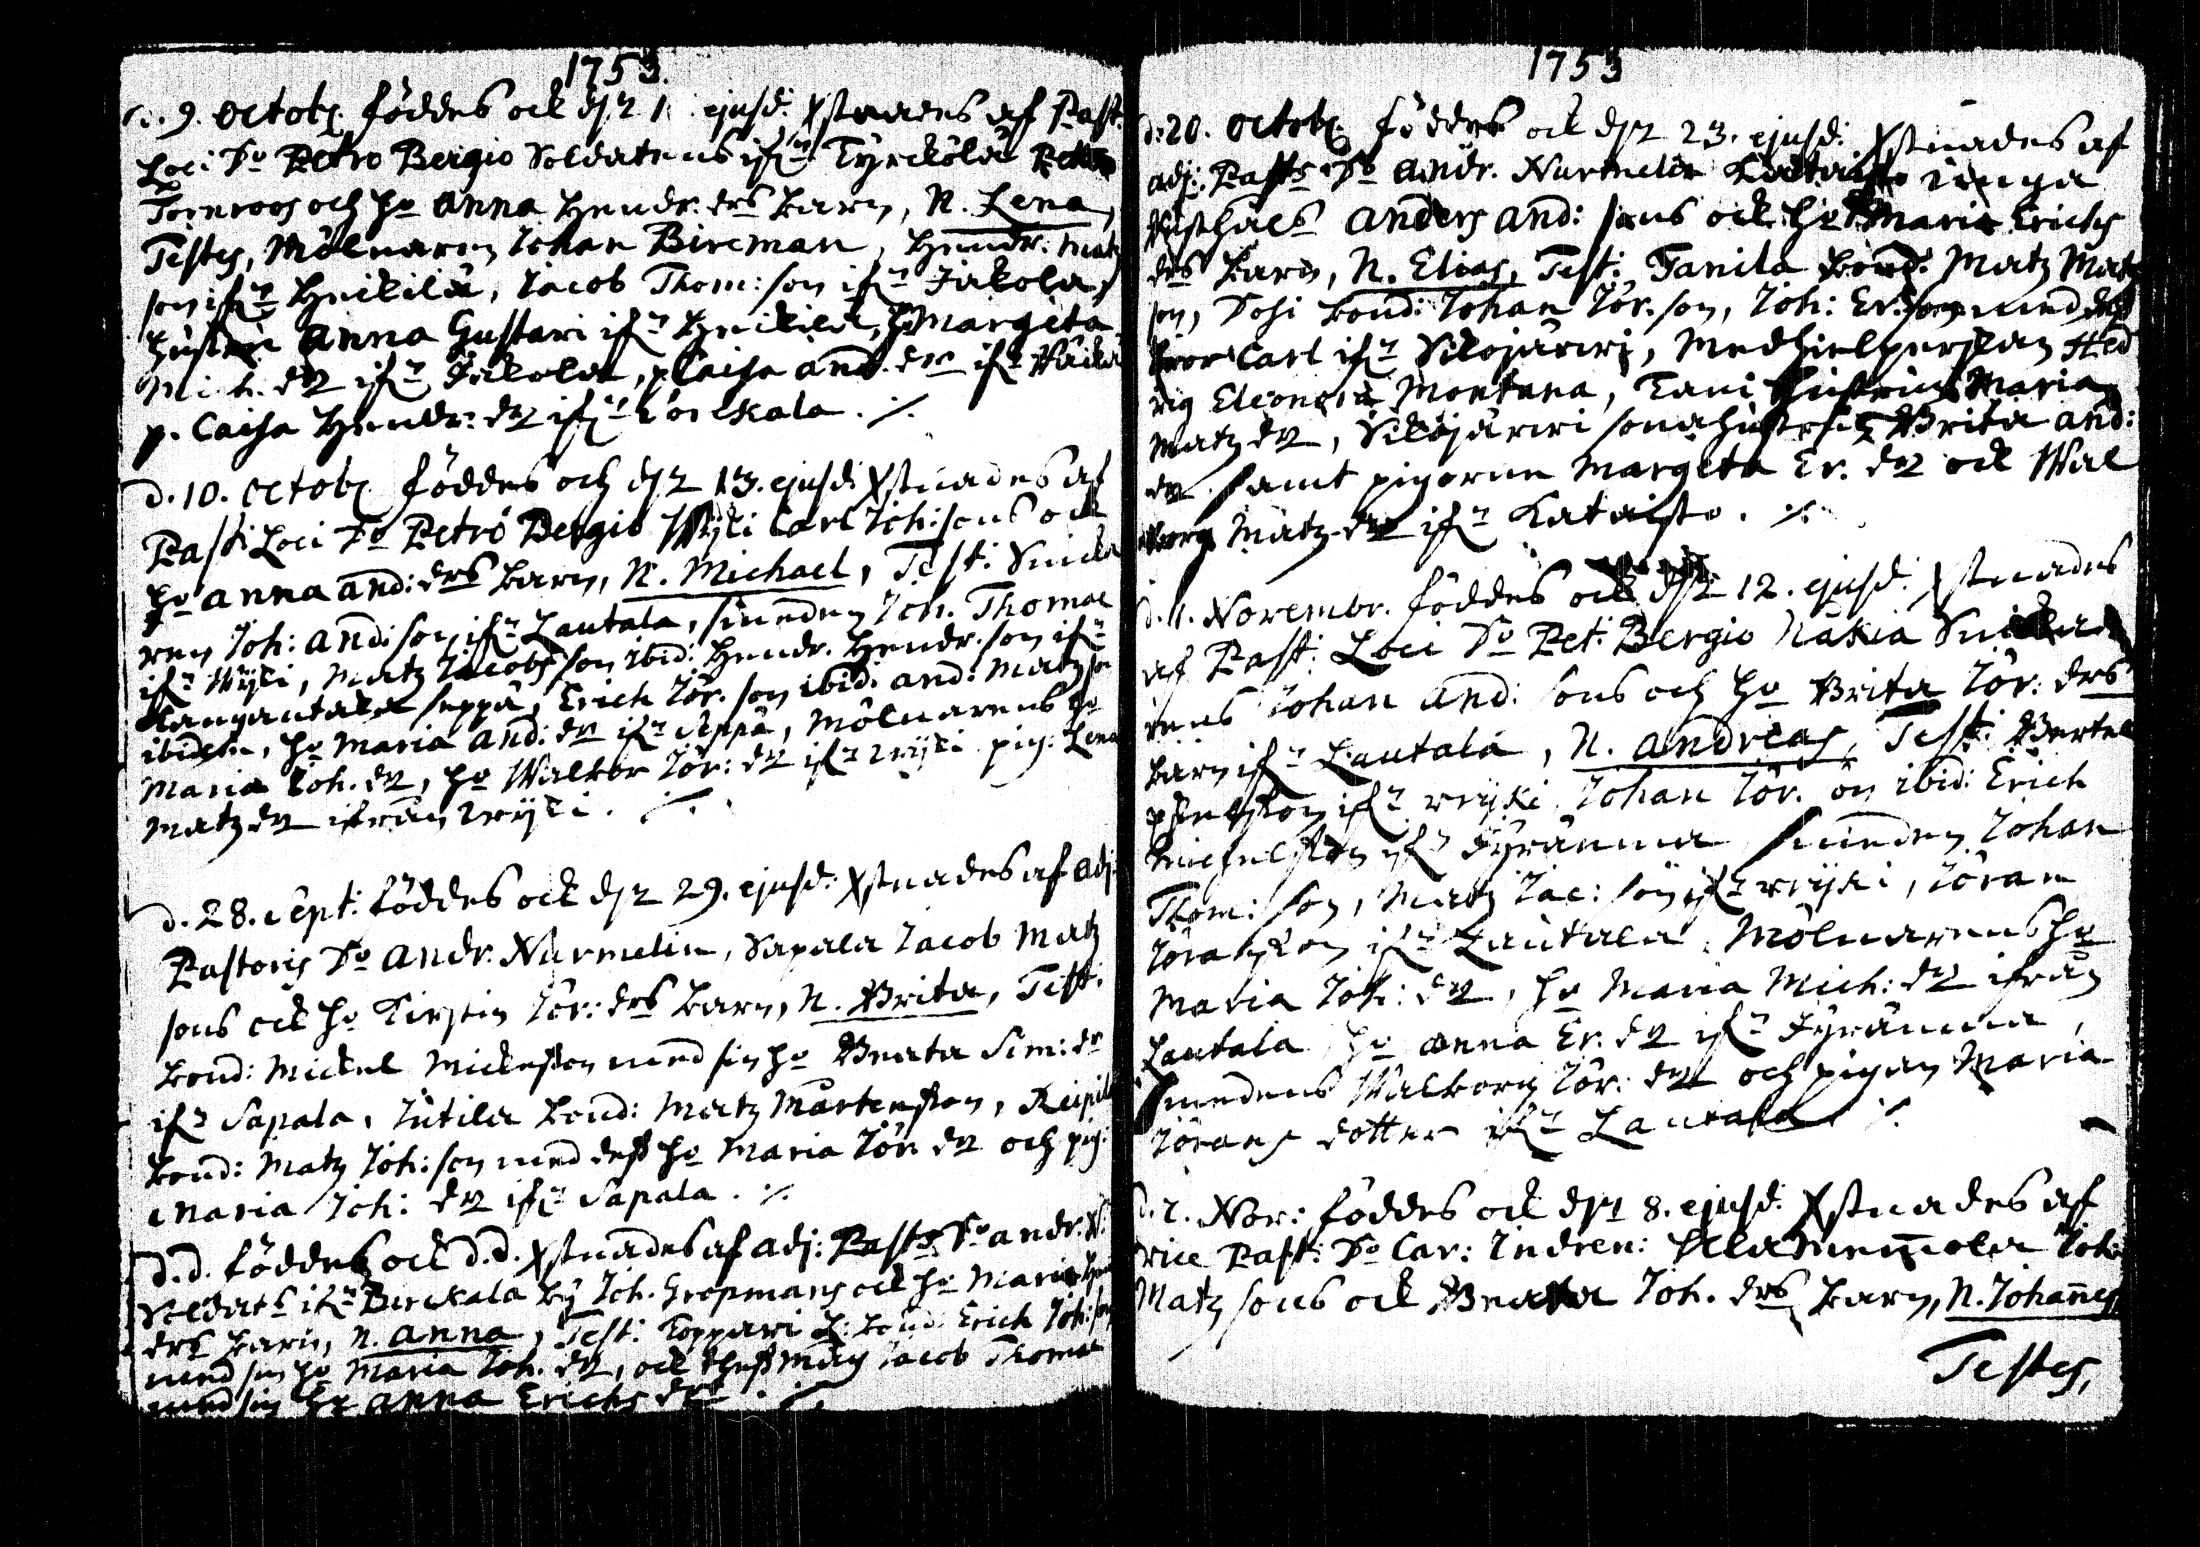 1753.
d. 9. Octobr. föddes och d. 1 ejusd. Xstnades af Past:
Loci Do Petro Bergio Soldatens ifrn Tyrckölä Petter
Törnroos och ho Anna Hendr. drs barn, N. Lena,
Testes, Mölnaren Johan Bircman, Hendr: Matz
son ifrn Heickilä, Jacob Thom: son ifrn Jakola,
hustru Anna Gustavi ifrn Heickilä, ho Margeta
Mich. dr ifrn Jakola, p. Caisa And. dr ifrn
p. Caisa Hendr: dr ifrn
d. 10. Octobr. föddes och d. 13. ejusd: Xstnades af
Past: Loci Do Petro Bergio Wyki Carl Joh: sons och
ho Anna And: drs barn, N. Michael, Test: Snicka
ren Joh: And: son ifrn Lautala, smeden Joh. Thomae
ifrn Wyki, Matz Jacobs son ibid: Hendr. Hendr. son ifrn
seppä, Erich Jör. son ibid: And: Matz son
ibidem, ho Maria And: dr ifrn Seppä, Mölnarens ho
Maria Joh. dr, ho Walbor Jör: dr ifrn Wyki pig: Lena
Matz dr ifrån Wyki.
d. 28. Sept: föddes och d. 29. ejusd: Xstnades af Adj.
Pastoris Do Andr. Nurmelin, Sapala Jacob Matz
sons och ho Kirstin Jör: drs barn, N. Brita, Test:
bond: Mickel Mickelson med sin ho Beata Sim: dr
ifrn Sapala, Jutila bond: Matz Mårtenson,
bond: Matz Joh: son med dess ho Maria Jör. dr och pig:
Maria Joh: dr ifrn Sapala.
d. d. föddes och d. d. Xstnades af Adj: Past: Do Andr. N:
Soldats ifrn Birckala by Joh. Gropmans och ho Maria
drs barn, N. Anna, Test: Toppari bond: Erich Joh: son
med sin ho Maria Joh. dr, och Jacob Thomae
med sin ho Anna Erichs dr.
1753
d. 20. Octobr. föddes och d. 23. ejusd: Xstnades af
Adj: Past: Do Andr. Nurmelin Kataisto unga
Anders And: sons och ho Maria Erichs
drs barn, N. Elias, Test: Tanila bond: Matz Matz
son, bond: Johan Jör. son, Joh: Er. son med dess
bror Carl ifrn Sikojärvi, Medhielperskan Hed
vig Eleonora Montana, Tani hustrun Maria
Matz dr, Sikojärvi sonahustrun Brita And:
dr samt pigorne Margeta Er. dr och Wal
borg Matz dr ifrn Kataisto.
d. 11. Novembr. föddes och d. 12. ejusd: Xstnades
af Past: Loci Do Pet: Bergio Nåkia Snicka
rens Johan And: sons och ho Brita Jör: drs
barn ifrn Lautala, N. Andreas, Test: Bertel
ifrn Wyki, Johan Jör. son ibid: Erich
Michelson ifrn Pyränmaa smeden Johan
Thom: son, Matz Jac: son ifrn Wyki, Jöran
Jöranson ifrn Lautala, Mölnarens ho
Maria Joh: dr, ho Maria Mich: dr ifrån
Lautala ho Anna Er. dr ifrn
smedens Walborg Jör: dr och pigan Maria
Jörans dotter ifrn Lautala
d. 7. Nov: föddes och d. 8. ejusd: Xstnades af
vice Past: Do Car: Indren: Joh:
Matz sons och Beata Joh. drs barn, N. Johannes
Testes,